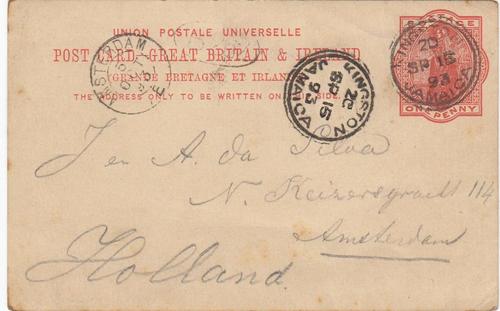 UNION POSTALE UNIVERSELLE
POST CARD-GREAT BRITAIN & IRELAND
(GRANDE BRETAGNE ET IRLANDE)
THE ADDRESS ONLY TO BE WRITTEN ON THIS SIDE
POSTAGE
ONE PENNY
AMSTERDAM
KINGSTON
2D
SP 15
93
JAMAICA
KINGSTON
2D
SP 15
93
JAMAICA
A. da Silva
N. Keizersgracht 114
Amsterdam
Holland.